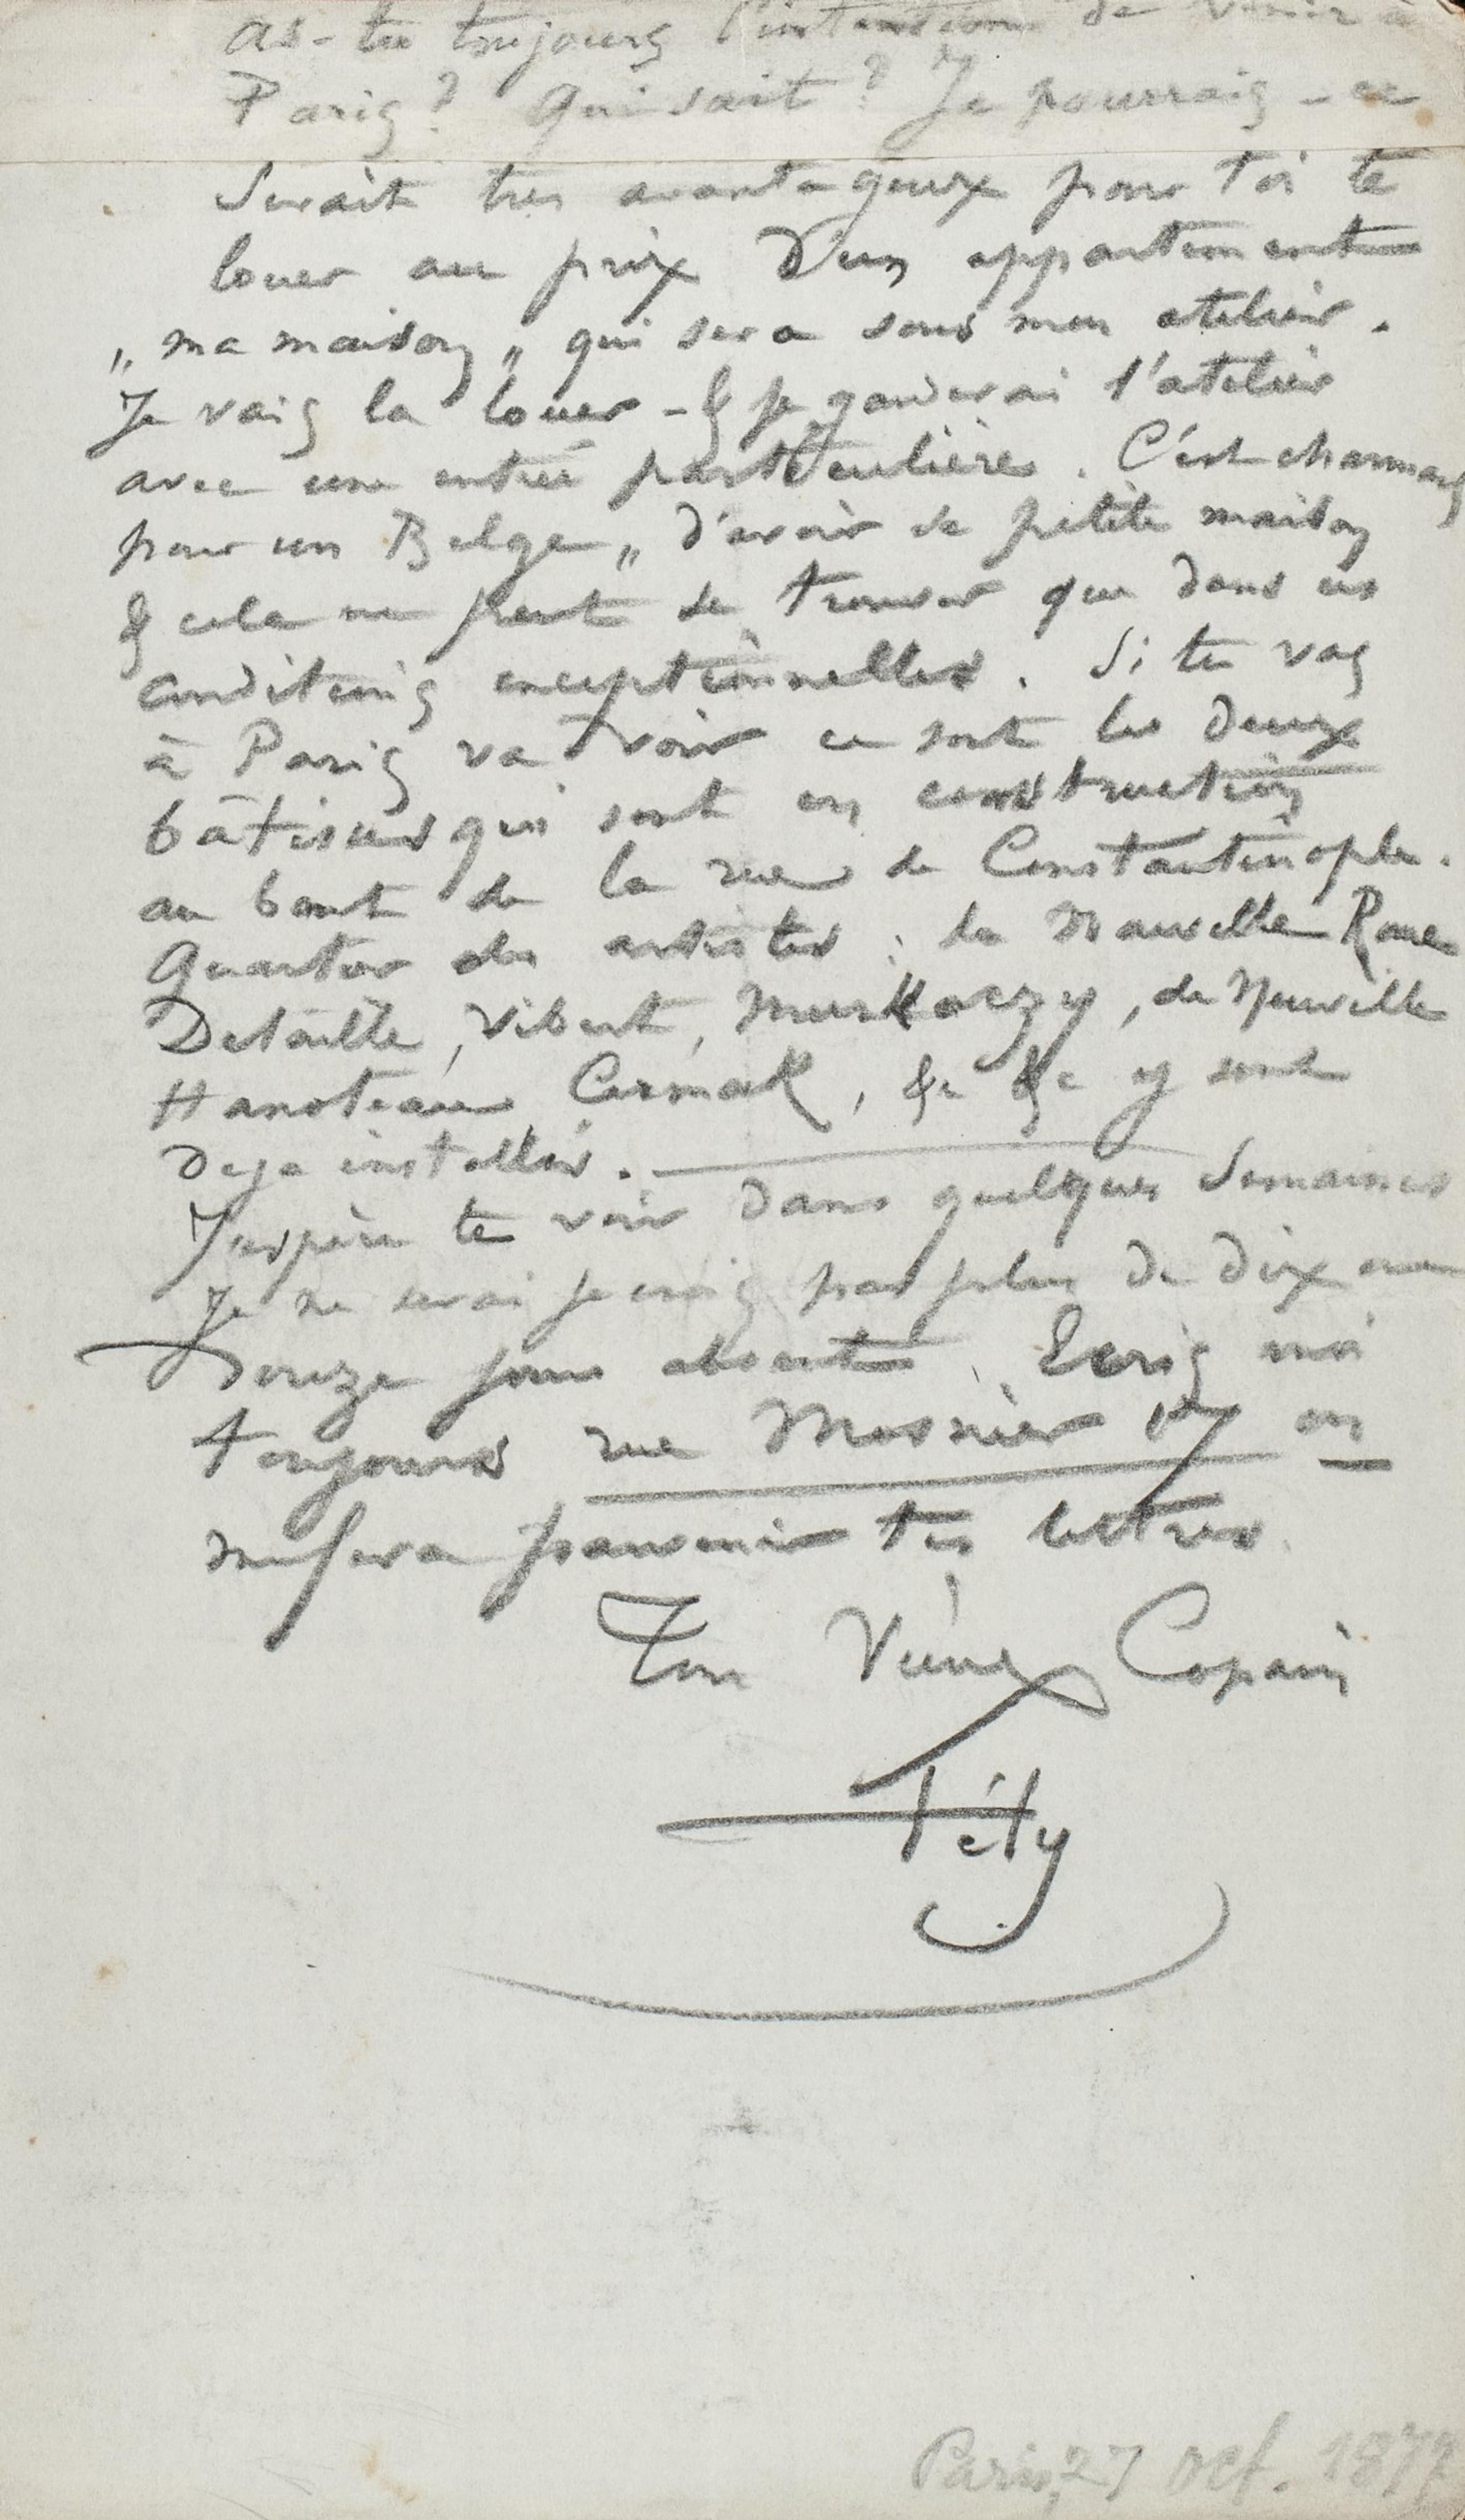 as-tu toujours l'intention de venir à
Paris? Qui sait? Je pourrais - ce
serait tres avantageux pour toi te
louer au prix d'un appartement
„ma maison„ qui sera sous mon atelier.
Je vais la louer - & je garderai l'atelier
avec une entrée particulière. C'est charmant
pour un Belge„ d'avoir sa petite maison
& cela ne peut se trouver que dans ces
conditions exceptionnelles. Si tu vas
à Paris va voir ce sont les deux
bâtisses qui sont en construction
au bout de la rue de Constantinople.
Quartier des artistes: la Nouvelle Rome
Detaille, Vibert, Munkaczy, de Neuville
Hanoteau Cermak, &c &c y sont
deja installés.
J'espère te voir dans quelques semaines
Je ne serai je crois pas plus de dix ou
douze jours absent. Ecris moi
toujours rue Mosnier 17 on
me fera parvenir tes lettres.
Ton Vieux Copain
Fély
Paris, 27 oct. 1877